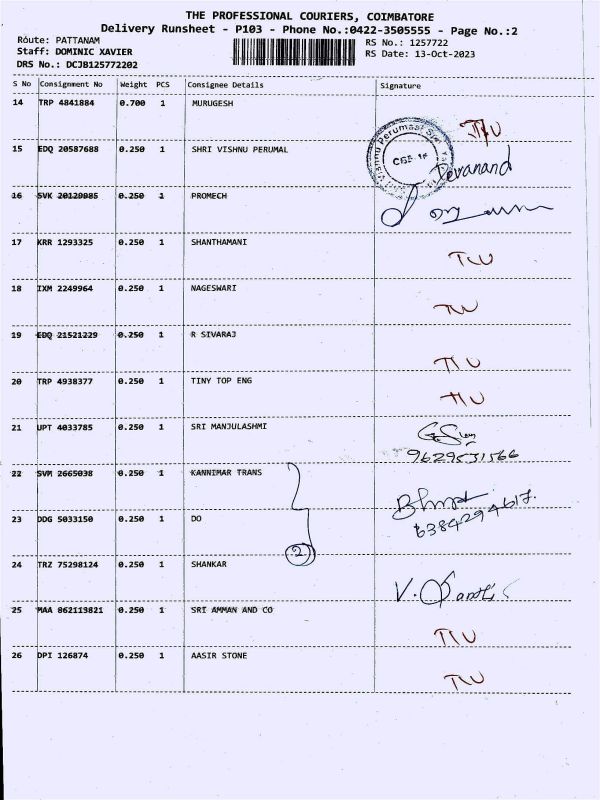 THE PROFESSIONAL COURIERS, COIMBATORE
Delivery Runsheet - P103 - Phone No.:0422-3505555 - Page No.:2
Route: PATTANAM
RS No.: 1257722
Staff: DOMINIC XAVIER
RS Date: 13-Oct-2023
DRS No.: DCJB125772202
S No Consignment No Weight PCS Consignee Details Signature
14 TRP 4841884 0.700 1 MURUGESH
15 EDQ 20587688 0.250 1 SHRI VISHNU PERUMAL
Devanand
16 SVK 20120985 0.250 1 PROMECH
17 KRR 1293325 0.250 1 SHANTHAMANI
18 IXM 2249964 0.250 1 NAGESWARI
19 EDQ 21521229 0.250 1 R SIVARAJ
20 TRP 4938377 0.250 1 TINY TOP ENG
21 UPT 4033785 0.250 1 SRI MANJULASHMI
9629531566
22 SVM 2665038 0.250 1 KANNIMAR TRANS
23 DDG 5033150 0.250 1 DO
6384294617.
2
24 TRZ 75298124 0.250 1 SHANKAR
25 MAA 862113821 0.250 1 SRI AMMAN AND CO
26 DPI 126874 0.250 1 AASIR STONE